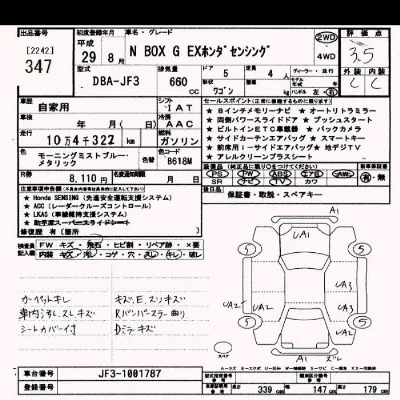 出品番号
[2242]
347
初度登録年月
平成
29年8月
車名・グレード
N BOX G EXホンダセンシング
2WD
4WD
評価点
3.5
型式
DBA-JF3
排気量
660
CC
形状
5
ドア
4
人
ワゴン
ハンドル 左 右
外装
内装
C
C
車歴
自家用
シフト
IAT
車検
年 月(日)
冷房
AAC
走行
10万4千322km
燃料
ガソリン
色
モーニングミストブルー・メタリック
色替
カラーNo.
B618M
R券
8,110円
セールスポイント(正確に情報をお伝えするものに限ります)
★8インチメモリーナビ ★オートリトラミラー
★両側パワースライドドア ★プッシュスタート
★ビルトインETC車載器 ★バックカメラ
★サイドカーテンエアバッグ ★スマートキー
★前席用i-サイドエアバッグ ★地デジTV
★アレルクリーンプラスシート
PS PW ABS エアB AW
SR ナビ TV カワ
有・無
保証書・取説・スペアキー
★ Honda SENSING (先進安全運転支援システム)
★ ACC (レーダークルーズコントロール)
★ LKAS (車線維持支援システム)
修復歴 有 [箇所 ]
検査員記入欄
FW キズ・飛石・ヒビ割・リペア跡・×要
内装 キズ・汚・コゲ・穴・スレ・キレ・破レ
カーペットキレ
車内汚れ、スレキズ
シートカバー付
キズ、E、スリキズ
Rバンパーステー曲り
Dミラーキズ
A1
UA3
UA2
UA3
UA2
UA2
A1
ズレ
5
5
5
5
スペア
車台番号
JF3-1001787
登録番号
型式指定番号
類別区分番号
長さ
339
cm
幅
147
cm
高さ
179
cm